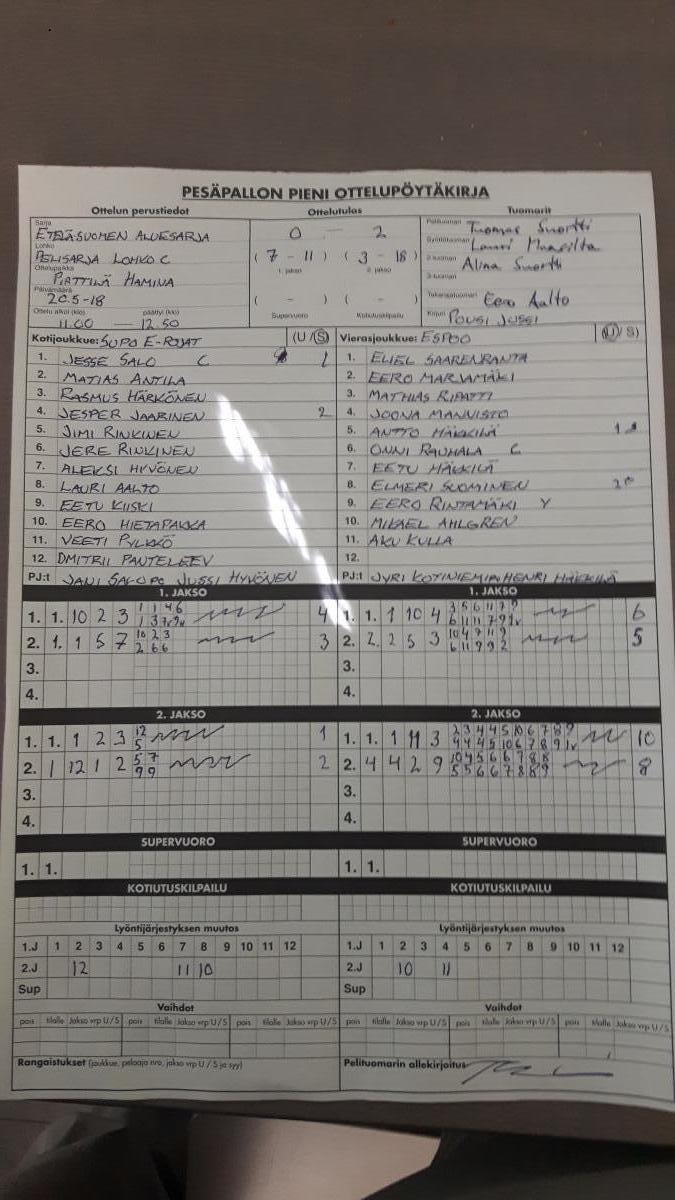 PESÄPALLON PIENI OTTELUPÖYTÄKIRJA
Ottelun perustiedot Ottelutulos Tuomarit
Sarja
ETELÄ-SUOMEN ALUESARJA 0 - 2
Lohko
PELISARJA LOHKO C ( 7 - 11 ) ( 3 - 18 )
1. jakso 2. jakso
Ottelupaikka
PIRTTILÄ HAMINA
Päivämäärä
20.5-18 ( - ) ( - )
Ottelu alkoi (klo) päättyi (klo) Supervuoro Kotiutuskilpailu
11.00 — 12.50
Pelituomari Tuomas Suortti
Syöttötuomari Lauri
2-tuomari Alina Suortti
3-tuomari
Takarajatuomari Eero Aalto
Kirjuri POUSI JUSSI
Kotijoukkue: SUPO E-POJAT (U/S)
1. JESSE SALO C 1
2. MATIAS ANTILA
3. RASMUS HÄRKÖNEN
4. JESPER JAARINEN 2
5. JIMI RINKINEN
6. JERE RINKINEN
7. ALEKSI HYVÖNEN
8. LAURI AALTO
9. EETU KIISKI
10. EERO HIETAPAKKA
11. VEETI PYLKKÖ
12. DMITRII PANTELEEV
PJ:t JANI SALOPO JUSSI HYVÖNEN
Vierasjoukkue: ESPOO (U/S)
1. ELIEL SAARENRANTA
2. EERO MARJAMÄKI
3. MATHIAS RIPATTI
4. JOONA MANNISTO
5. ANTTO HÄKKILÄ 1
6. ONNI RAUHALA C
7. EETU HÄKKILÄ
8. ELMERI SUOMINEN 2
9. EERO RINTAMÄKI Y
10. MIKAEL AHLGREN
11. AKU KULLA
12.
PJ:t JYRI KOTINIEMI HENRI HÄKKILÄ
1. JAKSO 1. JAKSO
1. 1. 10 2 3 4
2. 1. 1 5 7 3
3.
4.
1. 1. 1 10 4 6
2. 2 2 5 3 5
3.
4.
2. JAKSO 2. JAKSO
1. 1. 1 2 3 12 5 1
2. 1 12 1 2 5 7 9 9 2
3.
4.
1. 1. 1 11 3 10
2. 4 4 2 9 8
3.
4.
SUPERVUORO SUPERVUORO
1. 1. 1. 1.
KOTIUTUSKILPAILU KOTIUTUSKILPAILU
Lyöntijärjestyksen muutos Lyöntijärjestyksen muutos
1.J 1 2 3 4 5 6 7 8 9 10 11 12 1.J 1 2 3 4 5 6 7 8 9 10 11 12
2.J 12 11 10 2.J 10 11
Sup Sup
Vaihdot Vaihdot
pois tilalle Jakso vrp U/S pois tilalle Jakso vrp U/S pois tilalle Jakso vrp U/S pois tilalle Jakso vrp U/S pois tilalle Jakso vrp U/S pois tilalle Jakso vrp U/S
Rangaistukset (joukkue, pelaaja nro, jakso vrp U / S ja syy) Pelituomarin allekirjoitus